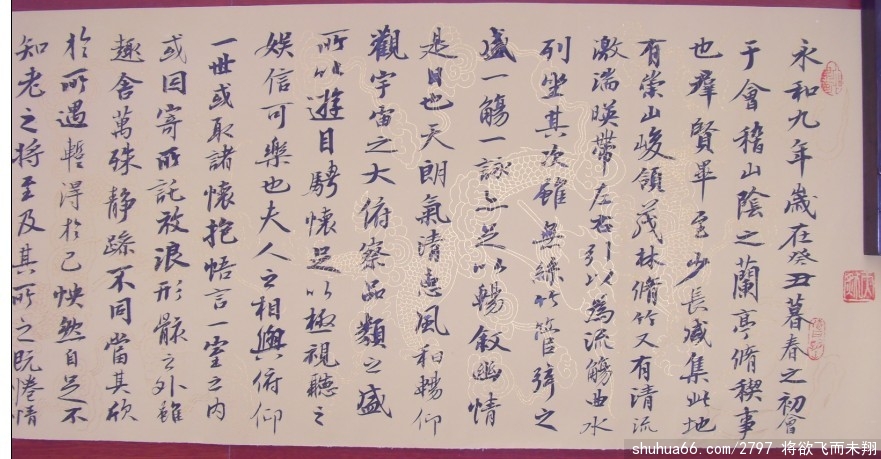 永和九年歲在癸丑暮春之初會
于會稽山陰之蘭亭脩稧事
也羣賢畢至少長咸集此地
有崇山峻領茂林脩竹又有清流
激湍暎帶左右引以為流觴曲水
列坐其次雖無絲竹管弦之
盛一觴一詠亦足以暢敘幽情
是日也天朗氣清惠風和暢仰
觀宇宙之大俯察品類之盛
所以遊目騁懷足以極視聽之
娛信可樂也夫人之相與俯仰
一世或取諸懷抱悟言一室之內
或因寄所託放浪形骸之外雖
趣舍萬殊靜躁不同當其欣
於所遇暫得於己怏然自足不
知老之將至及其所之既惓情
shuhua66.com/2797 将欲飞而未翔